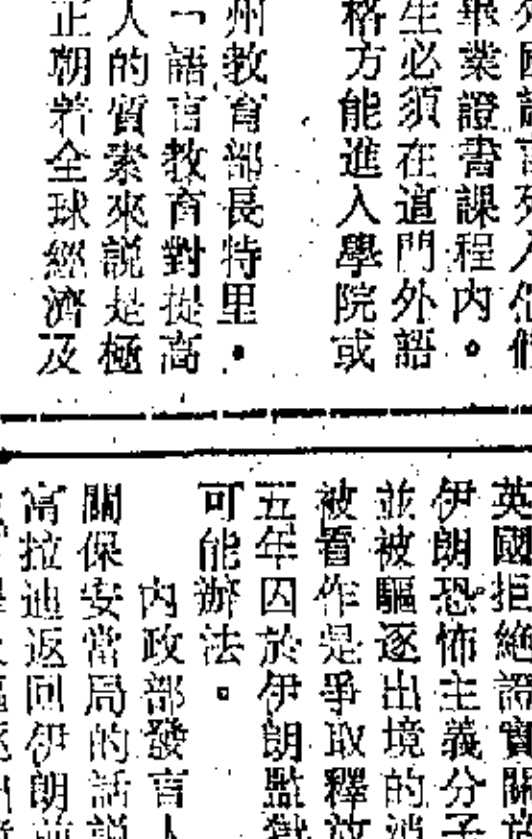 畢業證書課程內。
生必須在這門外語
格方能進入學院或
州教育部長特里·
「語言教育對提高
人的質素來說是極
正朝着全球經濟及
英國拒絕證實關
伊朗恐怖主義分子
並被驅逐出境的消
被看作是爭取釋放
五年囚於伊朗監獄
可能辦法。
內政部發言人
關保安當局的話説
富拉迪返回伊朗前